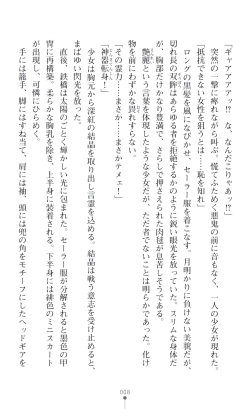 「ギャアアアアッ!?　な、なんだこりゃあッ!?」
突然の一撃に痺れながら叫ぶ、慌てふためく悪鬼の前に音もなく、一人の少女が現れた。
「抵抗できない女性を狙うとは――恥を知れ」
ロングの黒髪を風になびかせ、セーラー服を着こなす。月明かりに負けない美貌だが、
切れ長の双眸はあらゆる者を拒絶するかのように鋭い眼光を放っていた。スリムな身体だ
が、胸部だけかなり豊満で、さらしで押さえられた肉毬が息苦しそうである。
艶麗という言葉を体現したような少女だが、ただ者でないことは明らかであった。化け
物を前にわずかな畏れすらない。
「その霊力……まさか……まさかテメェー！」
「神器転身！」
少女は胸元から深紅の結晶を取り出し言霊を込める。結晶は戦う意志を受け止めると、
まばゆい閃光を放った。
直後、鉄橋は太陽のごとく輝かしい光に包まれた。セーラー服が分解されると墨色の甲
冑に再構築。柔らかな胸乳を除き、上半身に装着される。下半身には緋色のミニスカート
が出現し、可憐にひらめく。
手には籠手、脚にはすね当て、肩には袖、頭には兜の角をモチーフにしたヘッドギアを
008